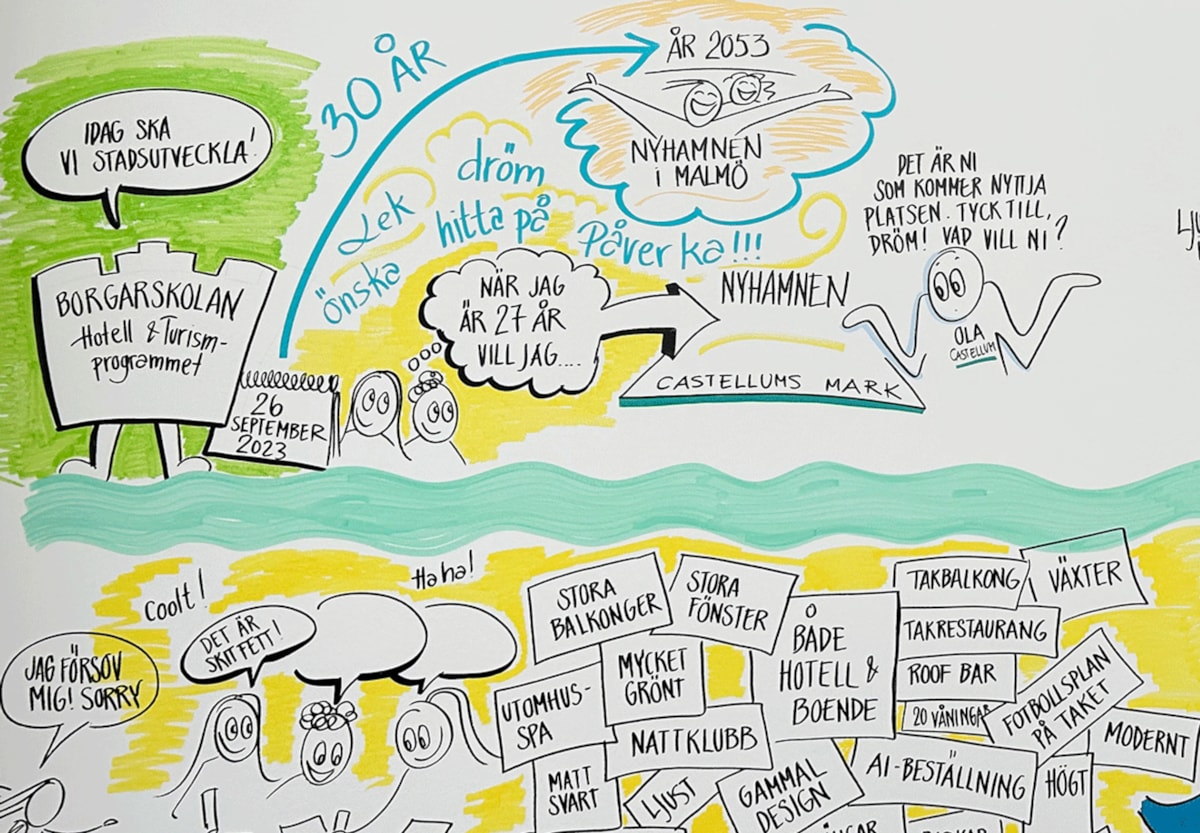 IDAG SKA
VI STADSUTVECKLA!
BORGARSKOLAN
Hotell & Turism-
programmet
26
SEPTEMBER
2023
30 ÅR
Lek
önska
dröm
hitta på
Påverka!!!
ÅR 2053
NYHAMNEN
i MALMÖ
NÄR JAG
ÄR 27 ÅR
VILL JAG....
NYHAMNEN
CASTELLUMS MARK
DET ÄR NI
SOM KOMMER NYTTJA
PLATSEN. TYCK TILL,
DRÖM! VAD VILL NI?
OLA
CASTELLUM
Coolt!
Ha ha!
JAG FÖRSOV
MIG! SORRY
DET ÄR
SKITFETT!
STORA
BALKONGER
STORA
FÖNSTER
UTOMHUS-
SPA
MYCKET
GRÖNT
NATTKLUBB
MATT
SVART
LJUST
GAMMAL
DESIGN
BÅDE
HOTELL &
BOENDE
TAKBALKONG
VÄXTER
TAKRESTAURANG
ROOF BAR
20 VÅNINGAR
FOTBOLLSPLAN
PÅ TAKET
MODERNT
AI-BESTÄLLNING
HÖGT